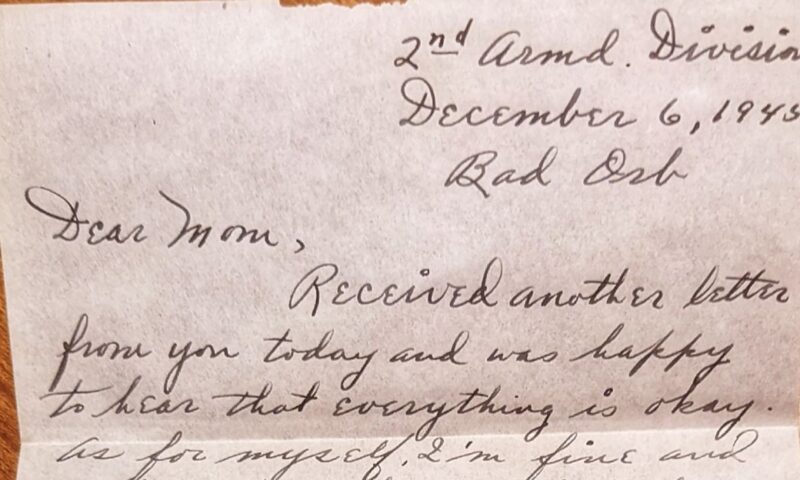 2nd Armd. Division
December 6, 1945
Bad Orb
Dear Mom,
Received another letter
from you today and was happy
to hear that everything is okay.
As for myself, I'm fine and